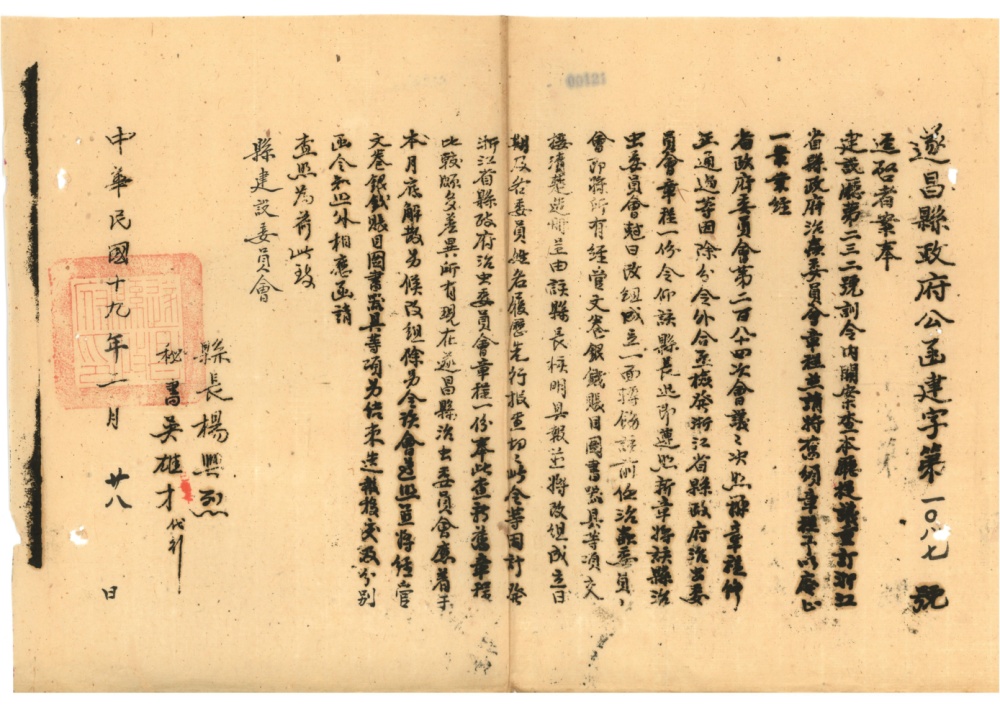 00121
遂昌縣政府公函建字第一〇八七號
逕啓者案奉
建設廳第二三二號訓令內開案查本廳提議重訂浙江
省縣政府治虫委員會章程並請將舊頒章程予以廢止
一案業經
省政府委員會第二百八十四次會議議決照辦章程修
正通過等因除分令外合亟檢發浙江省縣政府治虫委
員會章程一份令仰該縣長迅即遵照新章將該縣治
虫委員會尅日改組成立一面轉飭該前任治虫委員
會即將所有經管文卷銀錢賬目圖書器具等項交
接清楚造冊並由該縣長核明具報並將改組成立日
期及各委員姓名履歷先行報查切切此令等因計發
浙江省縣政府治虫委員會章程一份奉此查新舊章程
比較頗多差異所有現在遂昌縣治虫委員會應着于
本月底解散另候改組除另令該會遵照並將經管
文卷銀錢賬目圖書器具等項另結束造報移交及分別
函令知照外相應函請
查照為荷此致
縣建設委員會
縣長楊興烈
秘書吳雄才代行
中華民國十九年二月廿八日